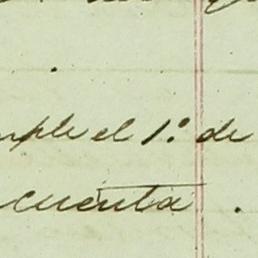 mple el 1º de
cuenta .